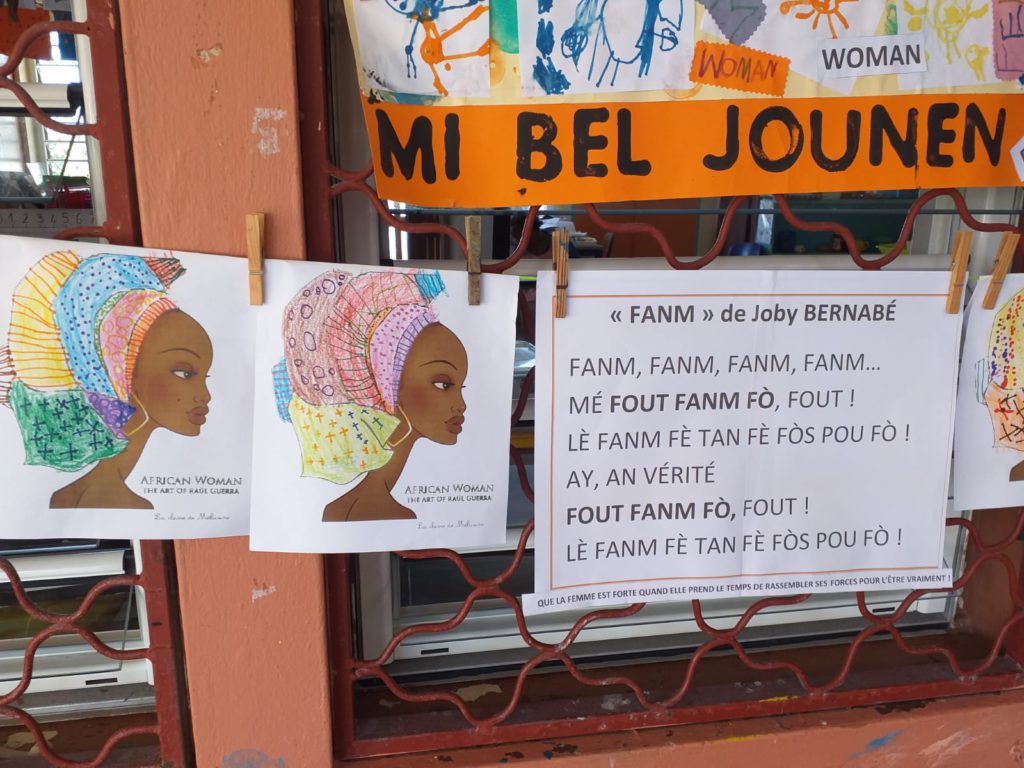 WOMAN
WOMAN
MI BEL JOUNEN
« FANM » de Joby BERNABÉ
FANM, FANM, FANM, FANM...
MÉ FOUT FANM FÒ, FOUT !
LÈ FANM FÈ TAN FÈ FÒS POU FÒ !
AY, AN VÉRITÉ
FOUT FANM FÒ, FOUT !
LÈ FANM FÈ TAN FÈ FÒS POU FÒ !
QUE LA FEMME EST FORTE QUAND ELLE PREND LE TEMPS DE RASSEMBLER SES FORCES POUR L'ÊTRE VRAIMENT !
AFRICAN WOMAN
THE ART OF RAÚL GUERRA
AFRICAN WOMAN
THE ART OF RAÚL GUERRA
0 1 2 3 4 5 6 7